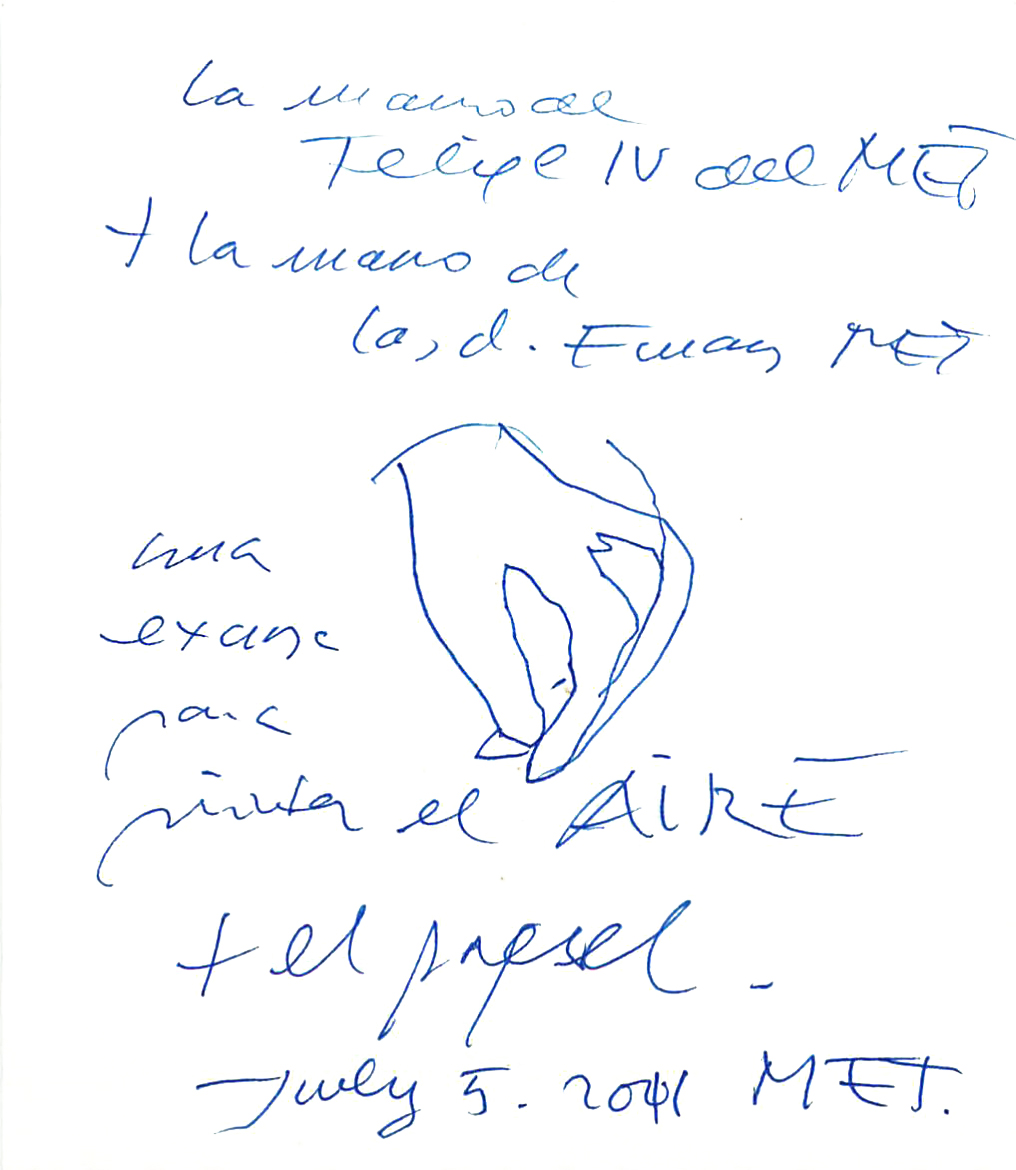 la mano de
Felipe IV del MET
+ la mano de
la, d. Emaus MET
una
excusa
para
pintar el AIRE
+ el papel.
July 5. 2011 MET.